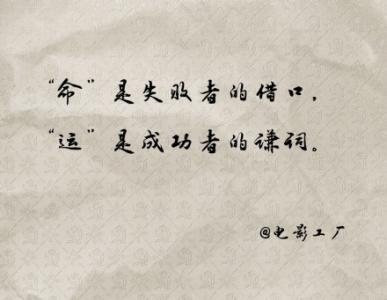 “命”是失败者的借口，
“运”是成功者的谦词。
@电影工厂